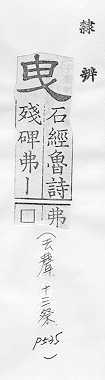 隸辨
曳
石經魯詩
殘碑弗｜
弗□
(去聲 十三祭 P535)